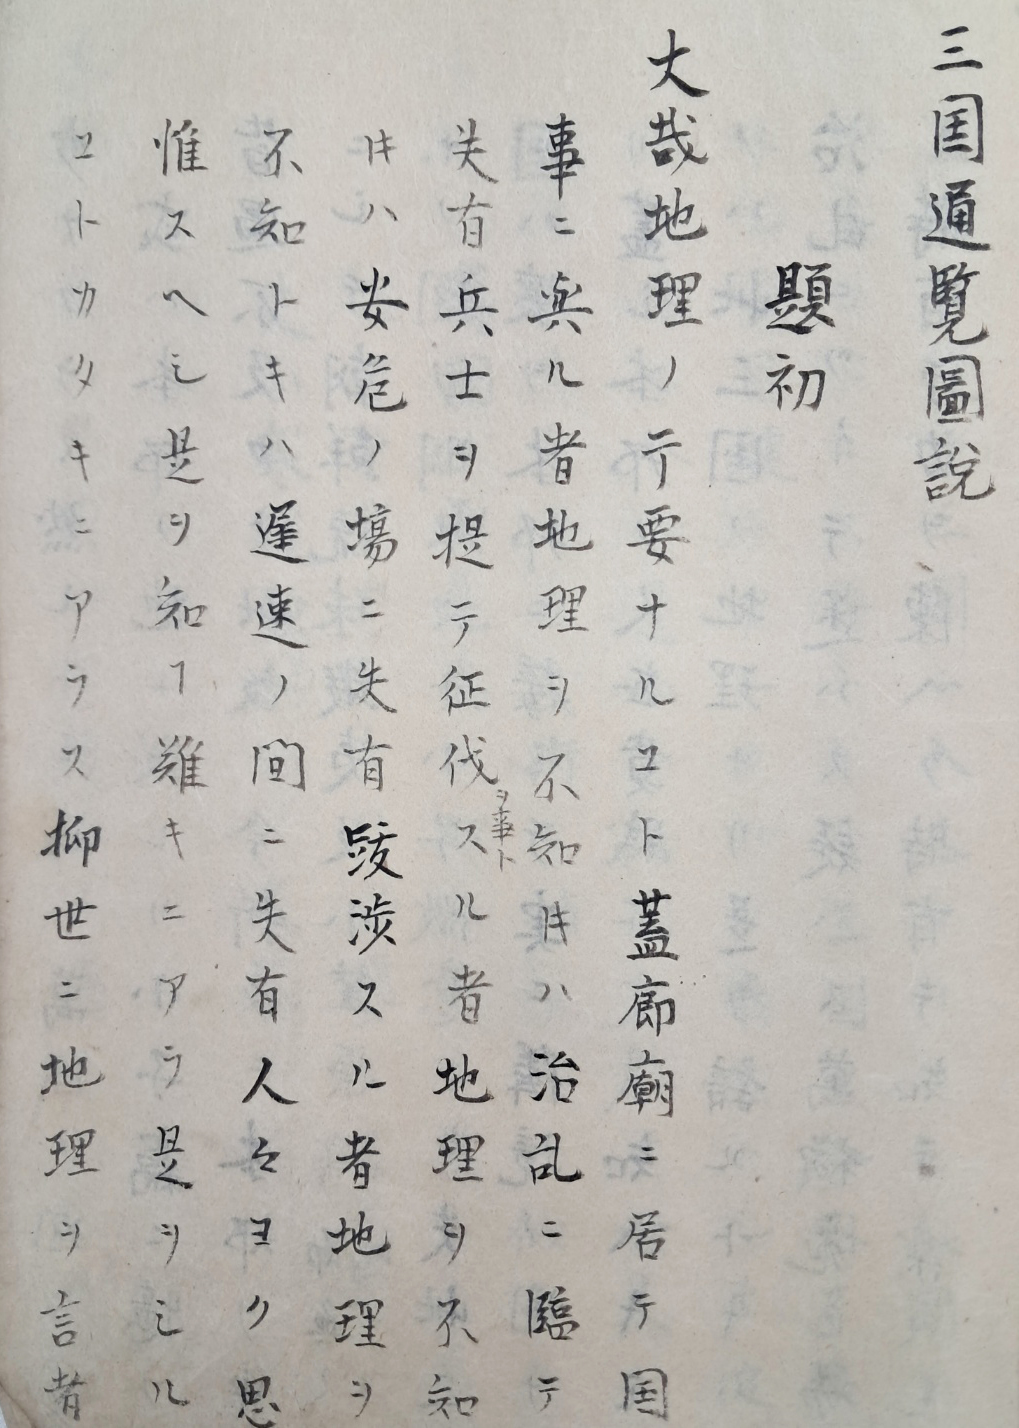 三国通覧圖說
題初
大哉地理ノ肝要ナルコト蓋廊廟ニ居テ国
事ニ與ル者地理ヲ不知キハ治乱ニ臨テ
失有兵士ヲ提テ征伐スル者地理ヲ不知
ヲ事ト
キハ安危ノ場ニ失有跋渉スル者地理ヲ
不知トキハ遅速ノ間ニ失有人々ヨク思
惟スヘシ是ヲ知ヿ難キニアラ是ヲシル
コトカタキニアラス抑世ニ地理ヲ言者